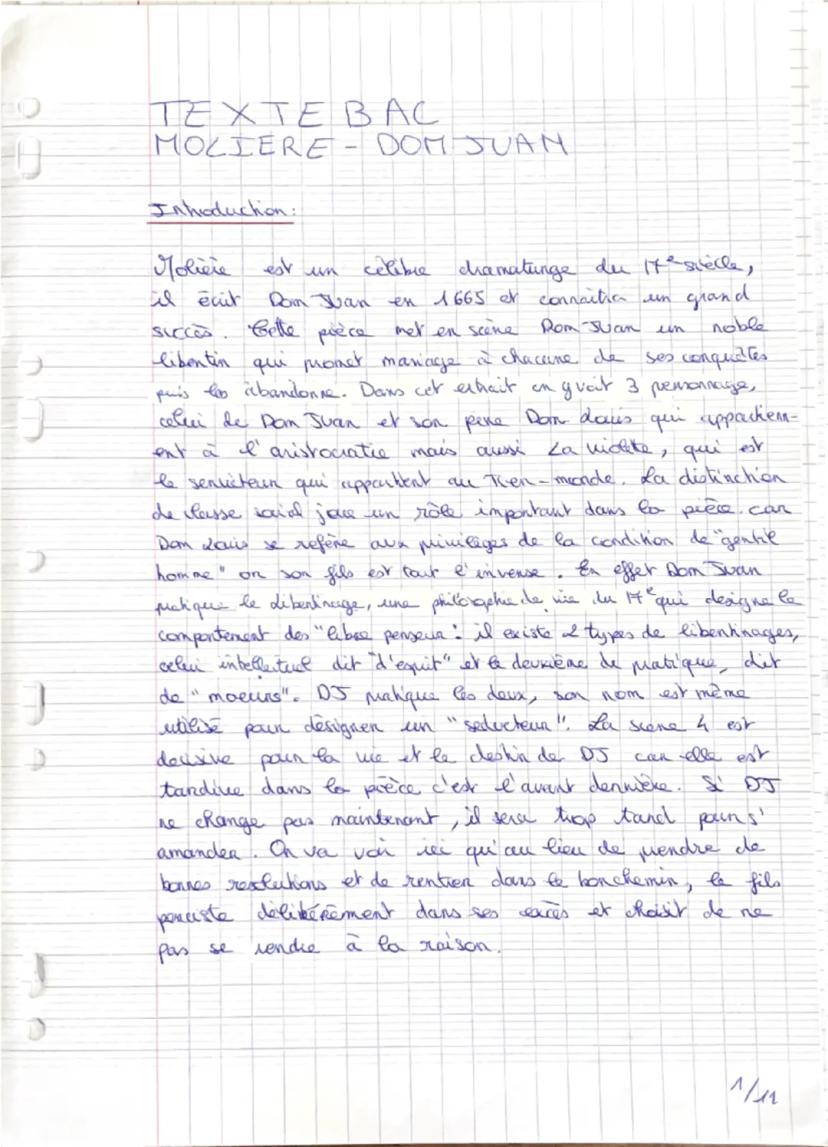 TEXTE BAC
MOLIERE - DOM JUAN
Introduction:
Molière est un célèbre dramaturge du 17e siècle,
il écrit Dom Juan en 1665 et connaîtra un grand
succès. Cette pièce met en scène Dom Juan un noble
libertin qui promet mariage à chacune de ses conquêtes
puis les abandonne. Dans cet extrait on y voit 3 personnage,
celui de Dom Juan et son père Dom Louis qui appartienn-
ent à l'aristocratie mais aussi La violette, qui est
le serviteur qui appartient au Tiers-monde. La distinction
de classe social joue un rôle important dans la pièce car
Dom Louis se refère aux privilèges de la condition de "gentil
homme" or son fils est tout l'inverse. En effet Dom Juan
pratique le libertinage, une philosophie de vie du 17e qui designe le
comportement des "libre penseur": il existe 2 types de libertinages,
celui intellectuel dit "d'esprit" et le deuxième de pratique, dit
de "moeurs". DJ pratique les deux, son nom est même
utilisé pour désigner un "seducteur". La scène 4 est
decisive pour la vie et le destin de DJ car elle est
tardive dans la pièce c'est l'avant dernière. Si DJ
ne change pas maintenant, il sera trop tard pour s'
amander. On va voir ici qu'au lieu de prendre de
bonnes resolutions et de rentrer dans le bon chemin, le fils
persiste délibérément dans ses excès et choisit de ne
pas se rendre à la raison.
1/11